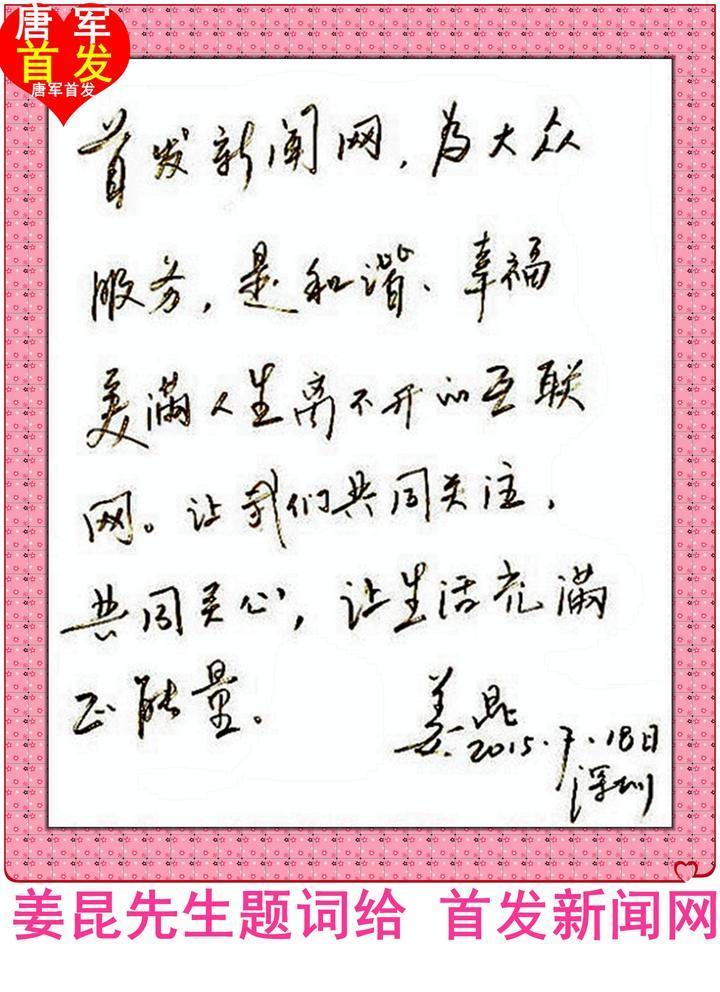 唐军
首发
唐军首发
首发新闻网，为大众
服务，是和谐、幸福
美满人生离不开的互联
网。让我们共同关注，
共同关心，让生活充满
正能量。
姜昆
2015.7.18日
深圳
姜昆先生题词给 首发新闻网